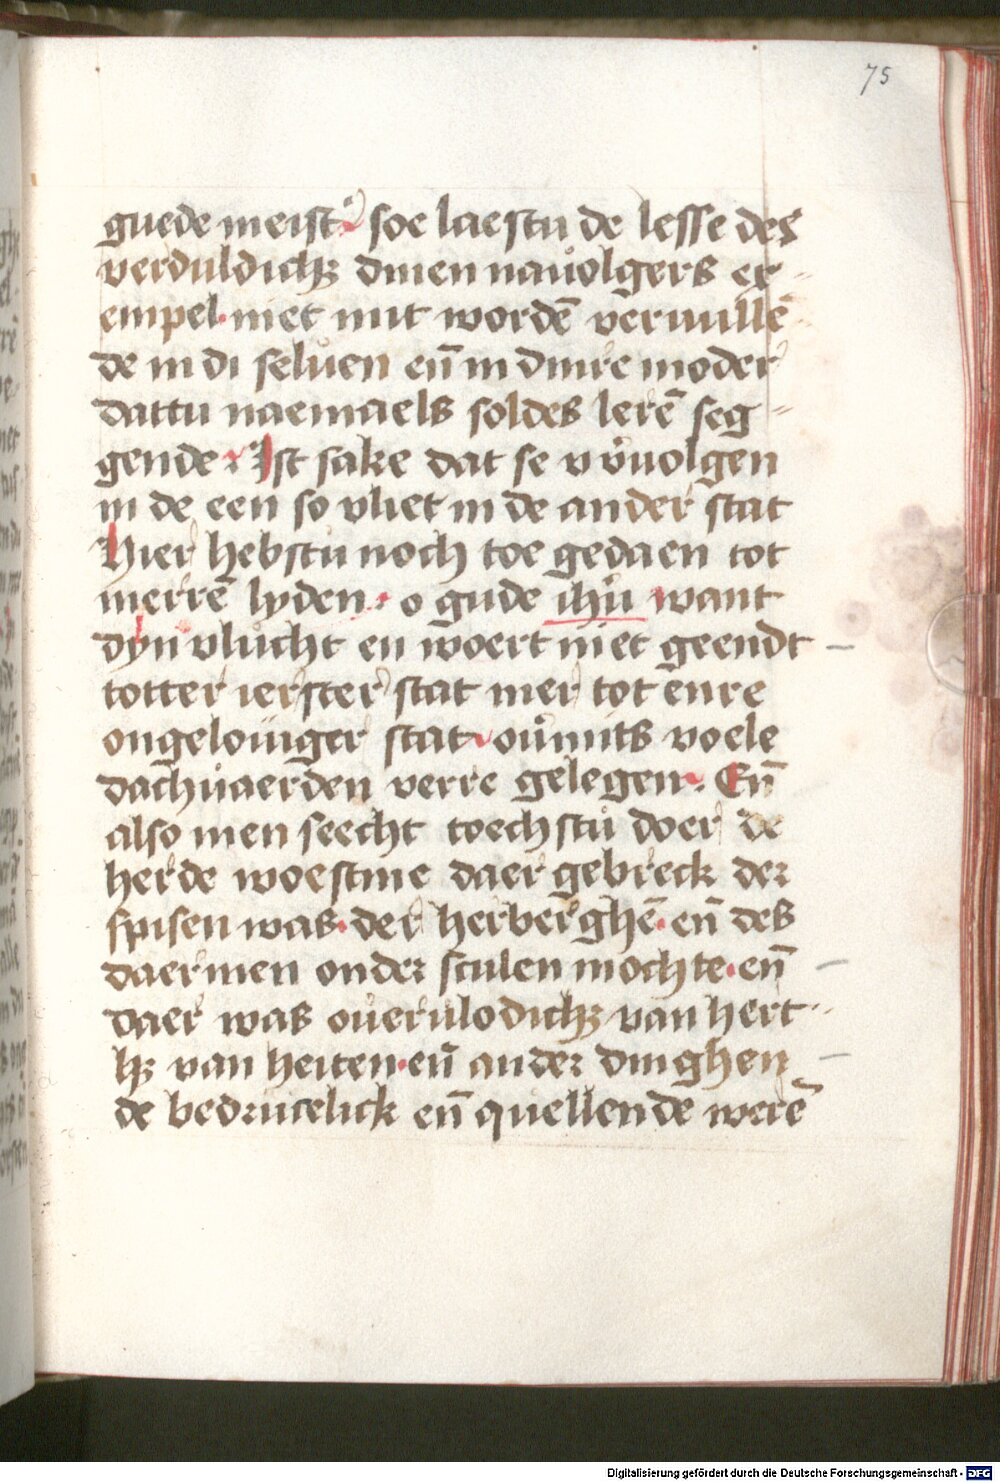 75
guede meist᷑ soe laestu de lesse des
verduldichꝫ dinen nauolgers ex-
empel· niet mit wordē veruullē
de in di seluen en̄ in dinre moder
dattu naemaels soldes lerē seg-
gende· Ist sake dat se v vͦuolgen
in de een so vliet in de ander stat
Hier hebstu noch toe gedaen tot
merrē lyden· o gude ihū want
dyn vlucht en woert niet geendt
totter ierster stat mer tot enre
ongelouiger stat ouͦmits voele
dachuaerden verre gelegen· En̄
also men seecht toechstu doer de
herde woestine daer gebreck der
spisen was· der herberghē· en̄ des
daermen onder sculen mochte· en̄
daer was oueruloдichꝫ van hert-
hꝫ van heiten· en̄ ander dinghen
de bedrucelick en̄ quellende werē
Digitalisierung gefördert durch die Deutsche Forschungsgemeinschaft - DFG